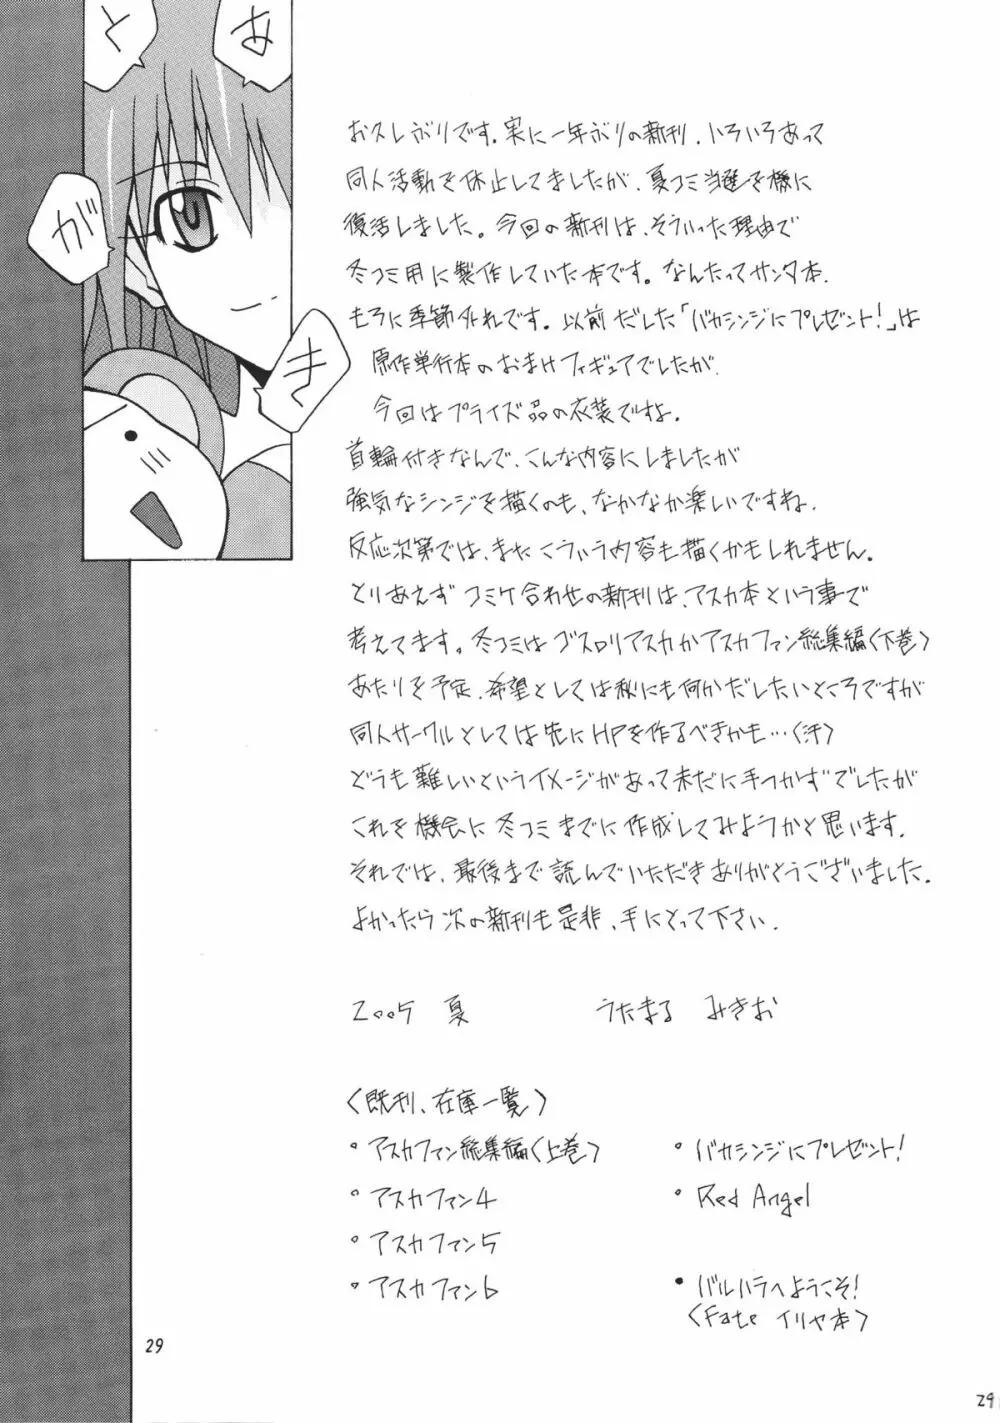 あ
と
が
き
お久しぶりです。実に一年ぶりの新刊、いろいろあって
同人活動を休止してましたが、夏コミ当選を機に
復活しました。今回の新刊は、そういった理由で
冬コミ用に製作していた本です。なんたってサンタ本.
もろに季節外れです。以前だした「バカシンジにプレゼント!」は
原作単行本のおまけフィギュアでしたが.
今回はプライズ品の衣装ですよ.
首輪付きなんで、こんな内容にしましたが
強気なシンジを描くのも、なかなか楽しいですね.
反応次第では、またこういう内容も描くかもしれません。
とりあえずコミケ合わせの新刊は、アスカ本という事で
考えてます。冬コミはゴスロリアスカかアスカファン総集編〈下巻〉
あたりを予定、希望としては秋にも何かだしたいところですが
同人サークルとしては先にHPを作るべきかも…〈汗〉
どうも難しいというイメージがあって未だに手つかずでしたが
これを機会に冬コミまでに作成してみようかと思います.
それでは、最後まで読んでいただきありがとうございました.
よかったら次の新刊も是非、手にとって下さい.
2005 夏 うたまる みきお
〈既刊、在庫一覧〉
• アスカファン総集編〈上巻〉 • バカシンジにプレゼント!
• アスカファン4 • Red Angel
• アスカファン5
• アスカファン6 • バルハラへようこそ!
〈Fate イリヤ本〉
29
29